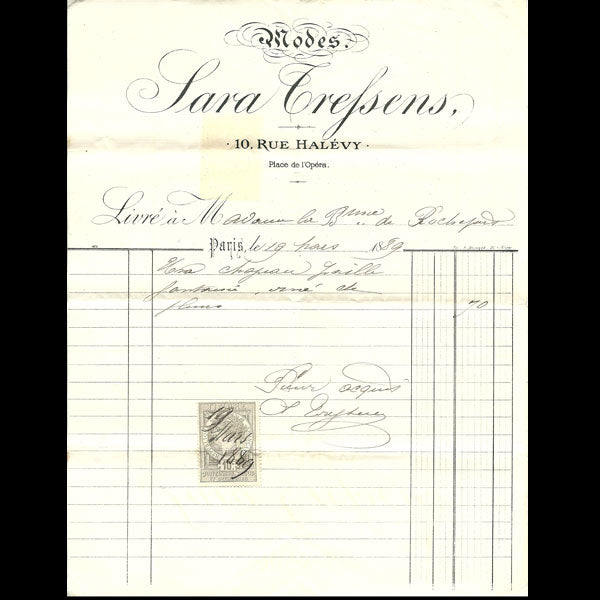 Modes.
Sara Treſsens,
· 10, RUE HALÉVY ·
Place de l'Opéra.
Livré à Madame la Bnne de Rochefort
Paris, le 19 Mars 1889
chapeau paille
fantaisie orné de
fleurs 70
Pour acquis
19
Mars
1889
10